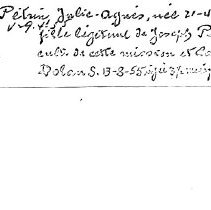 Pétrin, Julie-Agnès, née 21-4
fille légitime de Joseph P
cult. de cette mission et Ca
Dolan S. 13-8-55